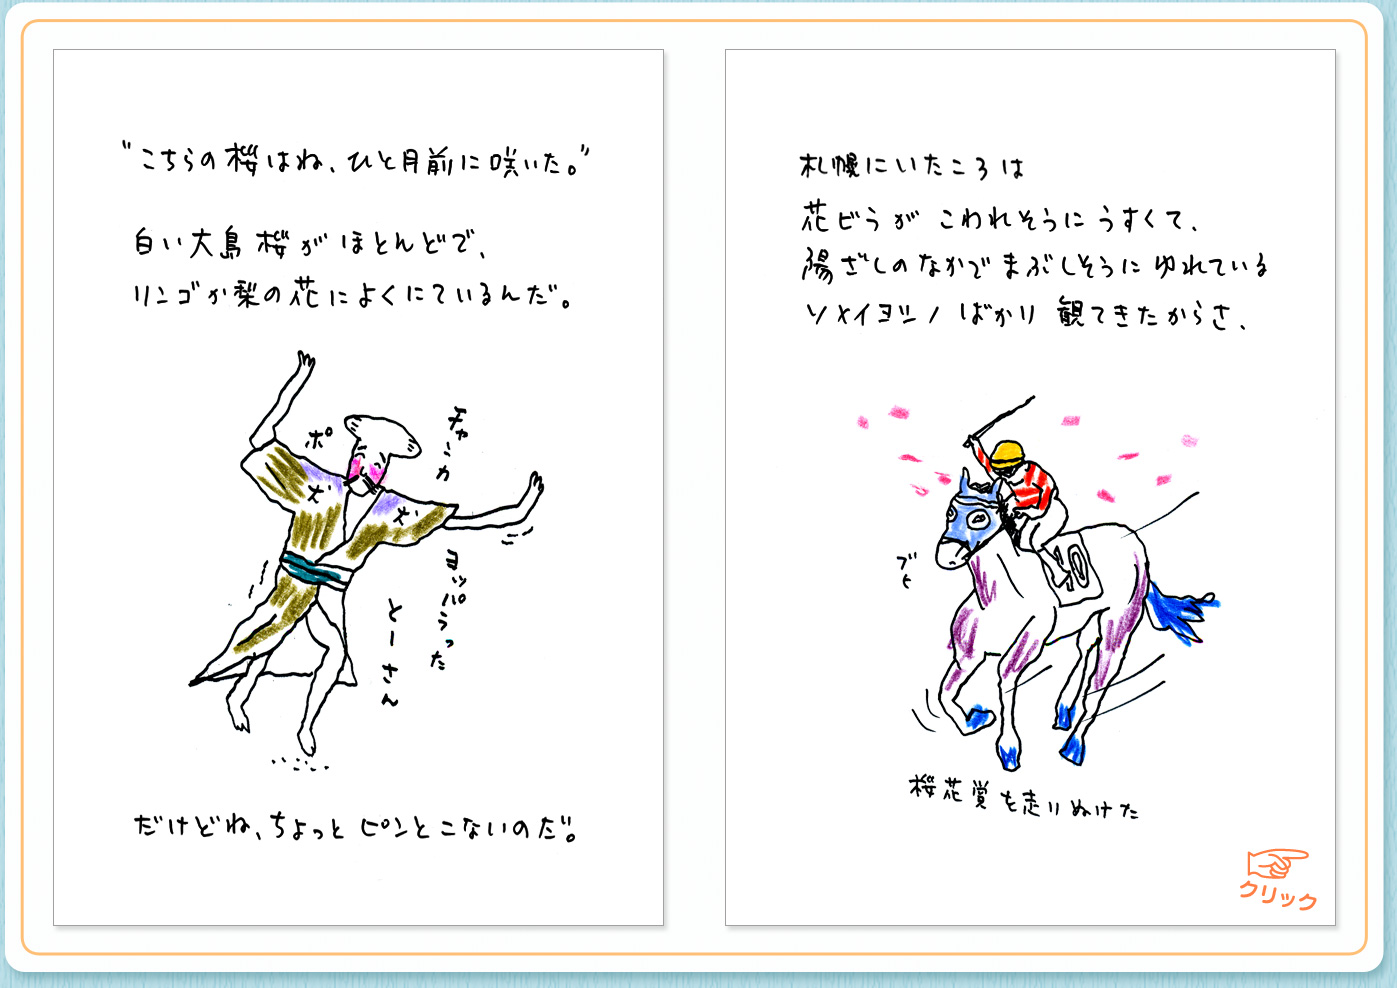 "こちらの桜はね、ひと月前に咲いた。"
白い大島桜がほとんどで、
リンゴか梨の花によくにているんだ。
ポ
犬
犬
チャミカ
ヨッパらった
とーさん
だけどね、ちょっとピンとこないのだ。
札幌にいたころは
花ビらが こわれそうに うすくて、
陽ざしのなかで まぶしそうに ゆれている
ソメイヨシノ ばかり 観てきたからさ、
10
桜花賞を走りぬけた
クリック